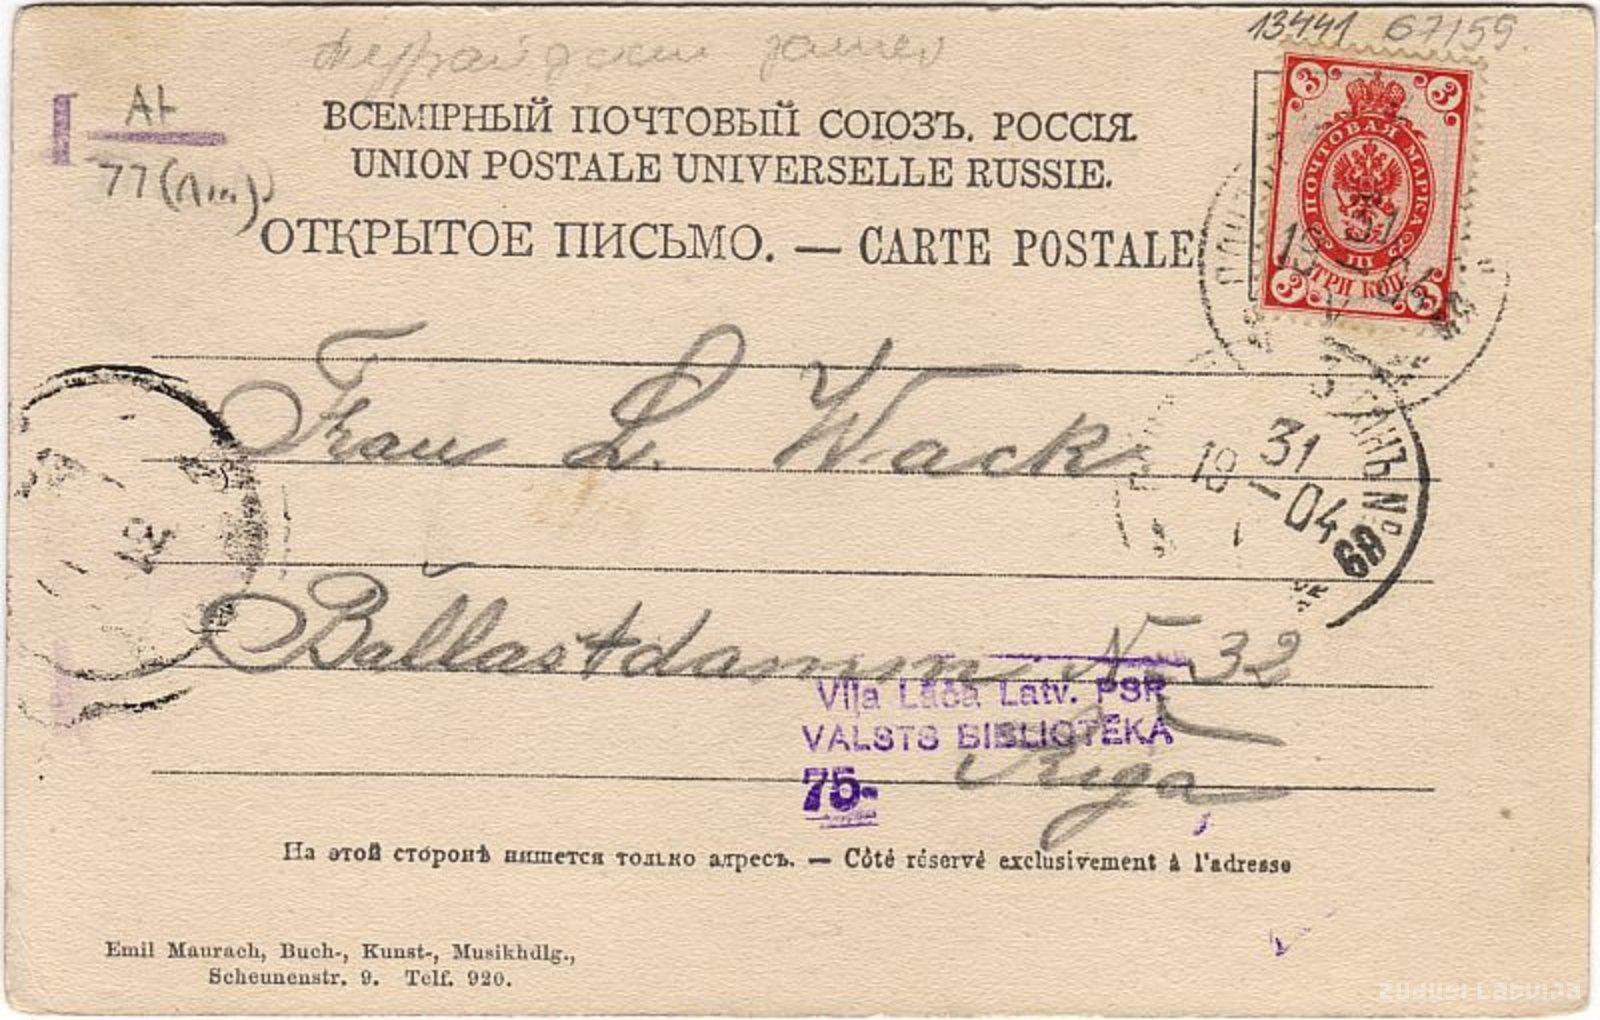 13441 67159.
At
77 (
ВСЕМІРНЫЙ ПОЧТОВЫЙ СОЮЗЪ. РОССІЯ.
UNION POSTALE UNIVERSELLE RUSSIE.
ОТКРЫТОЕ ПИСЬМО. — CARTE POSTALE
3 3
ПОЧТОВАЯ МАРКА
ТРИ КОП.
3 3
31
19 — 04
Frau L. Wack
31
19 — 04
№ 68
12
Ballastdamm N 32
Viļa Lāča Latv. PSR
VALSTS BIBLIOTĒKA
75-
Riga
На этой сторонѣ пишется только адресъ. — Côté réservé exclusivement à l'adresse
Emil Maurach, Buch-, Kunst-, Musikhdlg.,
Scheunenstr. 9. Telf. 920.
zudusi Latvija